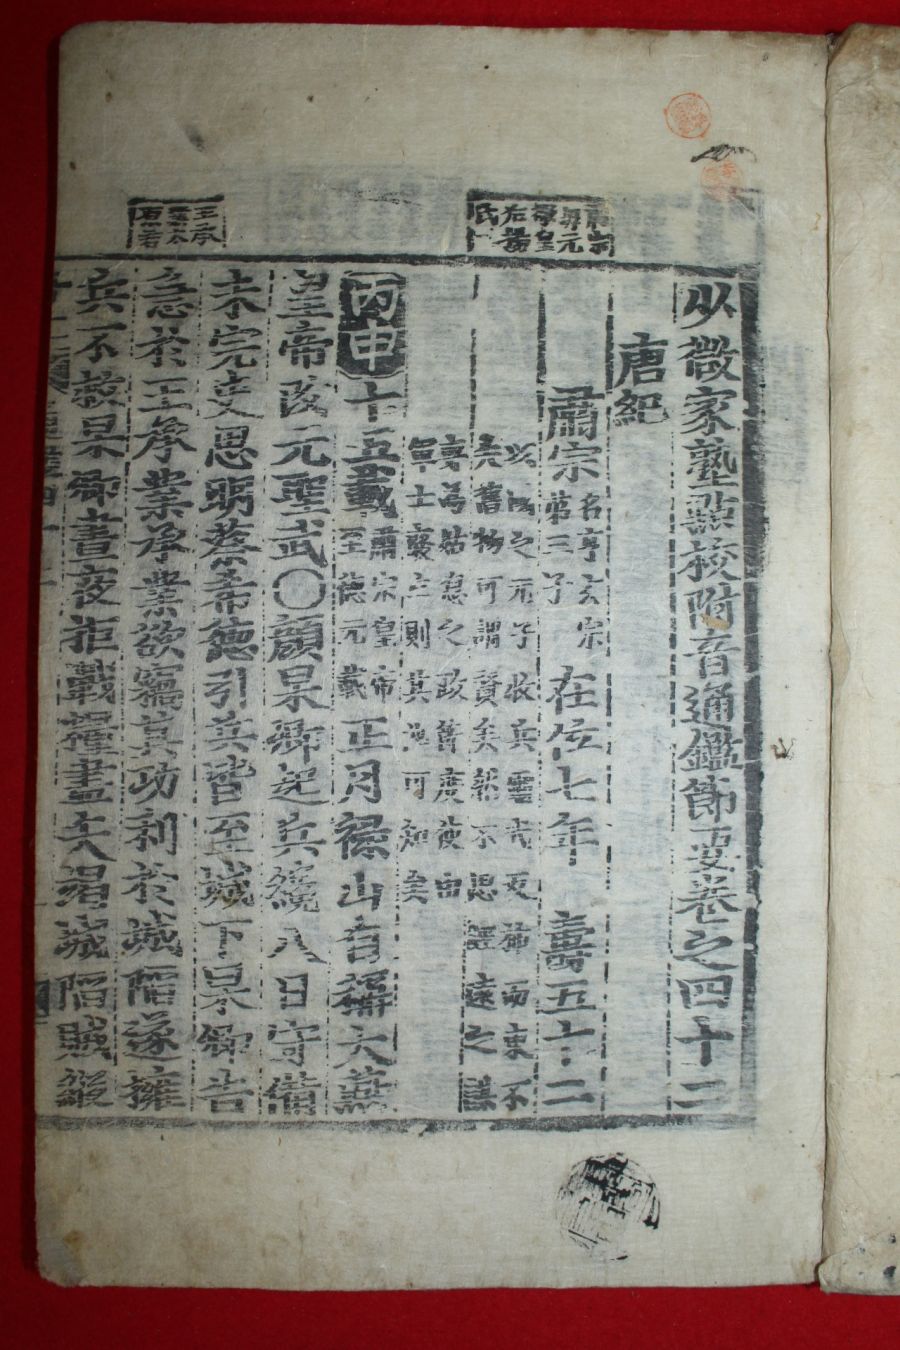 少微家塾點校附音通鑑節要卷之四十二
唐紀
肅宗 名亨玄宗第三子 在位七年 壽五十二
以國之元子收兵靈武反旆而東不
失舊物可謂賢矣不思經遠之謀
專為姑息之政
則其可知矣
丙申 十五載 肅宗皇帝至德元載 正月祿山自稱大燕
皇帝改元聖武○顏杲卿起兵纔八日守備
未完史思明蔡希德引兵皆至城下杲卿告
急於王承業承業欲竊其功利於城陷遂擁
兵不救杲卿晝夜拒戰糧盡矢竭城陷賊縱
王承
業太